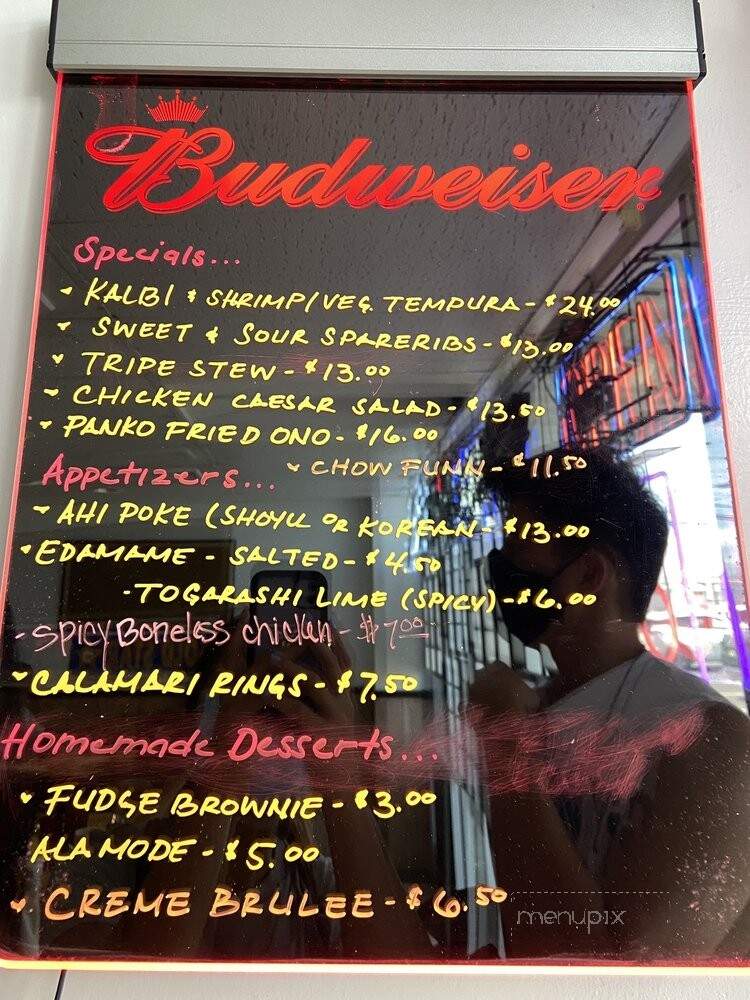 Budweiser
Specials...
- KALBI & SHRIMP/VEG. TEMPURA - $24.00
- SWEET & SOUR SPARERIBS - $13.00
- TRIPE STEW - $13.00
- CHICKEN CAESAR SALAD - $13.50
- PANKO FRIED ONO - $16.00
- CHOW FUNN - $11.50
Appetizers...
- AHI POKE (SHOYU OR KOREAN - $13.00
- EDAMAME - SALTED - $4.50
- TOGARASHI LIME (SPICY) - $6.00
- Spicy Boneless chicken - $7.00
- CALAMARI RINGS - $7.50
Homemade Desserts...
- FUDGE BROWNIE - $3.00
ALA MODE - $5.00
- CREME BRULEE - $6.50
menupix